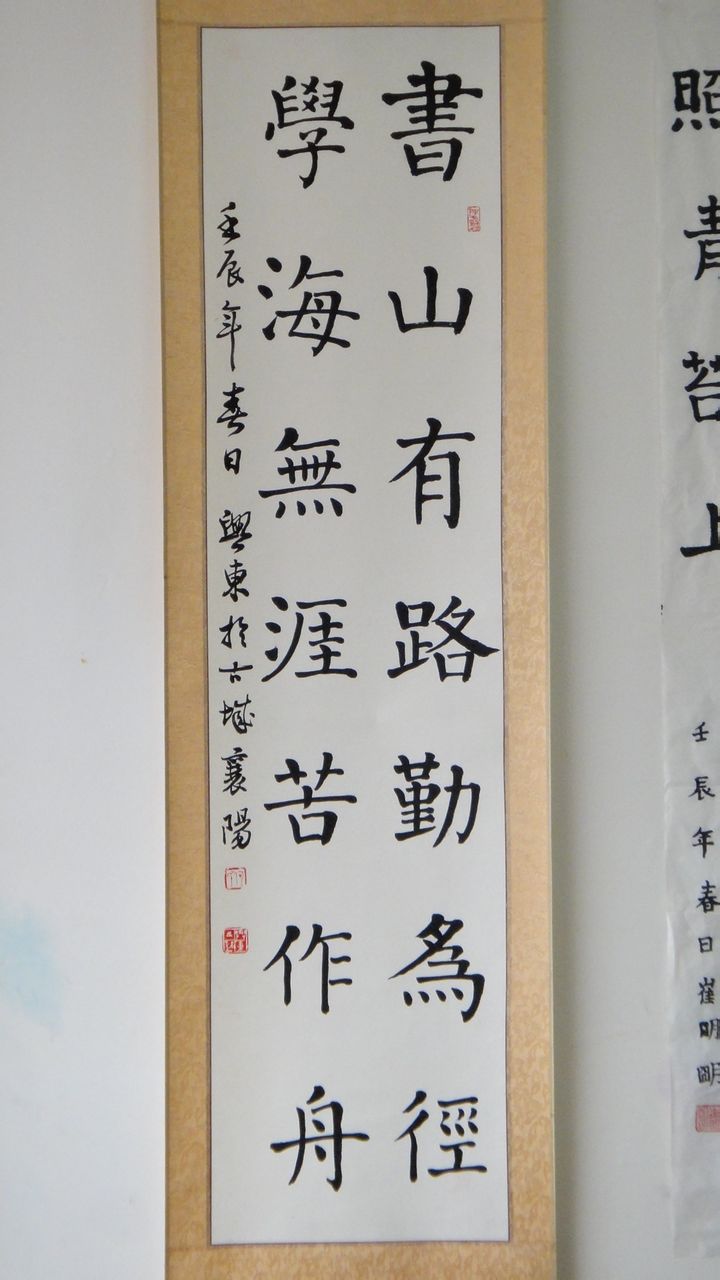 書山有路勤為徑
學海無涯苦作舟
壬辰年春日興東於古城襄陽
照青苔上
壬辰年春日崔明明